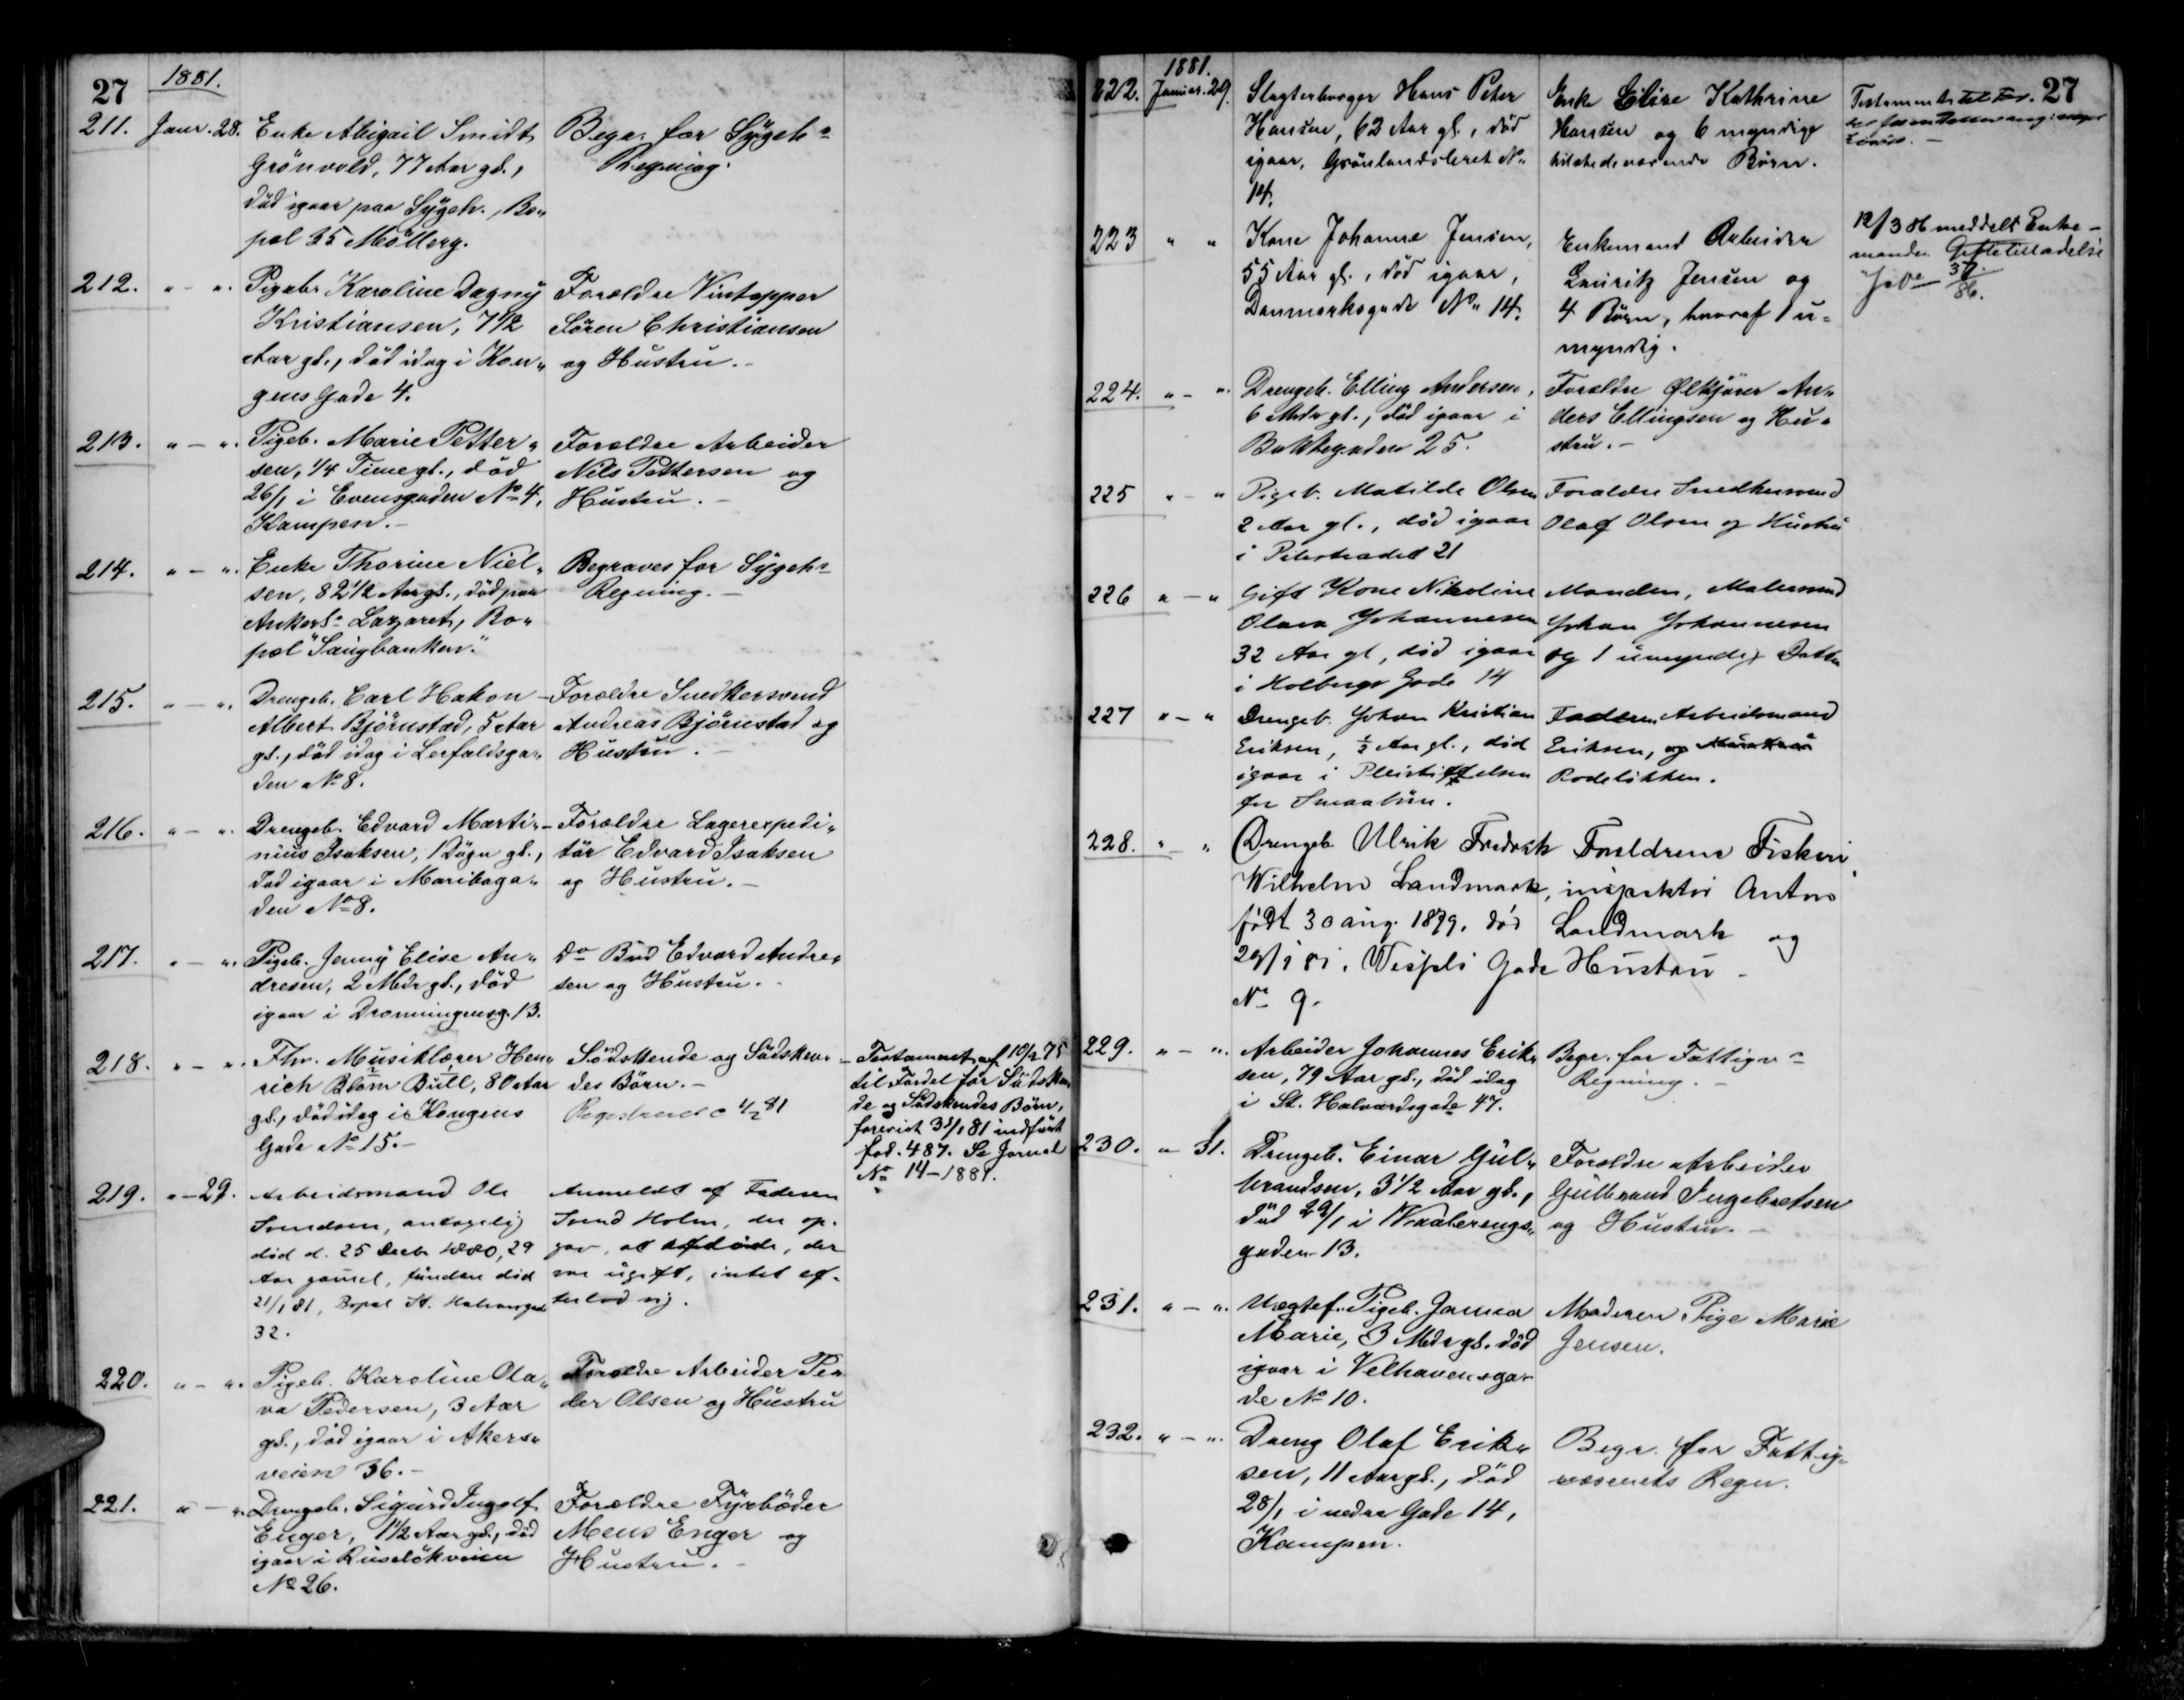 27
1881.
211. Janr. 28. Enke Abigail Smidt
Grönvold, 77 Aar gl.,
död igaar paa Sygeh., Bo„
pæl 35 Möllerg.
Begr. for Sygeh=
Regning.
212. „ - „. Pigebr Karoline Dagny
Kristiansen, 7 1/2
Aar gl., död idag i Kon„
gens Gade 4.
Forældre Vintapper
Sören Christiansen
og Hustru. -
213. „ - „. Pigeb. Marie Petter„
sen, 1/4 Time gl., död
26/1 i Evensgaden No 4.
Kampen. -
Forældre Arbeider
Nils Pettersen og
Hustru. -
214. „ - „. Enke Thorine Niel„
sen, 82 1/2 Aar gl., död paa
Ankerl= Lazaret, Bo„
pæl "Saugbanken".
Begraves for Sygeh=
Regning. -
215. „ - „. Drengeb. Carl Hakon
Albert Björnstad, 5 Aar
gl., död idag i Lerfaldsga„
den No 8.
Forældre Snedkersvend
Andreas Björnstad og
Hustru. -
216. „ - „. Drengeb. Edvard Marti„
nius Isaksen, 1 Dögn gl.,
död igaar i Mariboga„
den No 8.
Forældre Lagerexpedi„
tör Edvard Isaksen
og Hustru. -
217. „ - „. Pigeb. Jenny Elise An„
dresen, 2 Mdr gl., död
igaar i Dronningensg. 13.
Do Bud Edvard Andre„
sen og Hustru. -
218. „ - „. Fhv. Musiklærer Hen„
rich Blom Bull, 80 Aar
gl., död idag i Kongens
Gade No 15. -
Södskende og Södsken„
des Börn. -
Registreret 4/2 81
Testament af 10/2 75
til Fordel for Södsken„
de og Södskendes Börn,
forevist 31/1 81 indfört
fol. 487. Se Jornal
No 14-1881.
219. „ - 29. Arbeidsmand Ole
Svendsen, antagelig
död d. 25 Decbr 1880, 29
Aar gammel, funden död
21/1 81, Bopæl St. Halvorsgade
32.
Anmeldt af Faderen
Svend Holm, der op-
gav, at Afdöde, der
var ugift, intet ef-
terlod sig.
220. „ - „. Pigeb. Karoline Ola„
va Pedersen, 3 Aar
gl., död igaar i Akers„
veien 36. -
Forældre Arbeider Pe„
der Olsen og Hustru
221. „ - „. Drengeb. Sigurd Ingolf
Enger, 1 1/2 Aar gl., död
igaar i Ruselökveien
No 26.
Forældre Fyrböder
Mens Enger og
Hustru. -
27
1881.
222. Januar. 29. Slagterborger Hans Peter
Hansen, 62 Aar gl., död
igaar, Grönlandsleret No
14.
Enke Elise Kathrine
Hansen og 6 myndige
tilstedeværende Börn.
223 „ „ Kone Johanne Jensen,
55 Aar gl., död igaar,
Danmarksgade No 14.
Enkemand Arbeider
Lauritz Jensen og
4 Börn, hvoraf 1 u-
myndig.
12/3 86 meddelt Enke-
manden Giftetilladelse
86.
224. „ - „. Drengeb. Elling Andersen,
6 Mdr gl., död igaar i
Bakkegaden 25.
Forældre Ölkjörer An„
ders Ellingsen og Hu„
stru. -
225 „ - „ Pigeb. Matilde Olsen
2 Aar gl., död igaar
i Pilestrædet 21
Forældre Snedkersvend
Olaf Olsen og Hustru
226 „ - „ Gift Kone Nikoline
Olava Johannesen
32 Aar gl, död igaar
i Holbergs Gade 14
Manden, Malersvend
Johan Johannesen
og 1 umyndig Datter
227 „ - „ Drengeb. Johan Kristian
Eriksen, 1/2 Aar gl., död
igaar i Pleiestiftelsen
for Smaabörn.
Faderen Arbeidsmand
Eriksen, og Hustru
Rodelökken.
228. „ - „ Drengeb. Ulrik Fredrik
Wilhelm Landmark,
födt 30 aug. 1879, död
29/1 81. Wessels Gade
No 9.
Forældrene Fiskeri
inspektör Anton
Landmark og
Hustru -
229. „ - „. Arbeider Johannes Erik„
sen, 79 Aar gl., död idag
i St. Halvardsgade 47.
Begr. for Fattigv=
Regning. -
230. „ 31. Drengeb. Einar Gul„
brandsen, 3 1/2 Aar gl.,
död 29/1 i Waalerengs„
gaden 13.
Forældre Arbeider
Gulbrand Ingebretsen
og Hustru. -
231. „ - „. Uægtef. Pigeb. Janna
Marie, 3 Mdr gl. död
igaar i Velhavensga„
de No 10.
Moderen Pige Marie
Jensen.
232. „ - „. Dreng Olaf Erik„
sen, 11 Aar gl., död
28/1 i nedre Gade 14,
Kampen.
Begr. for Fattig„
væsenets Regn.